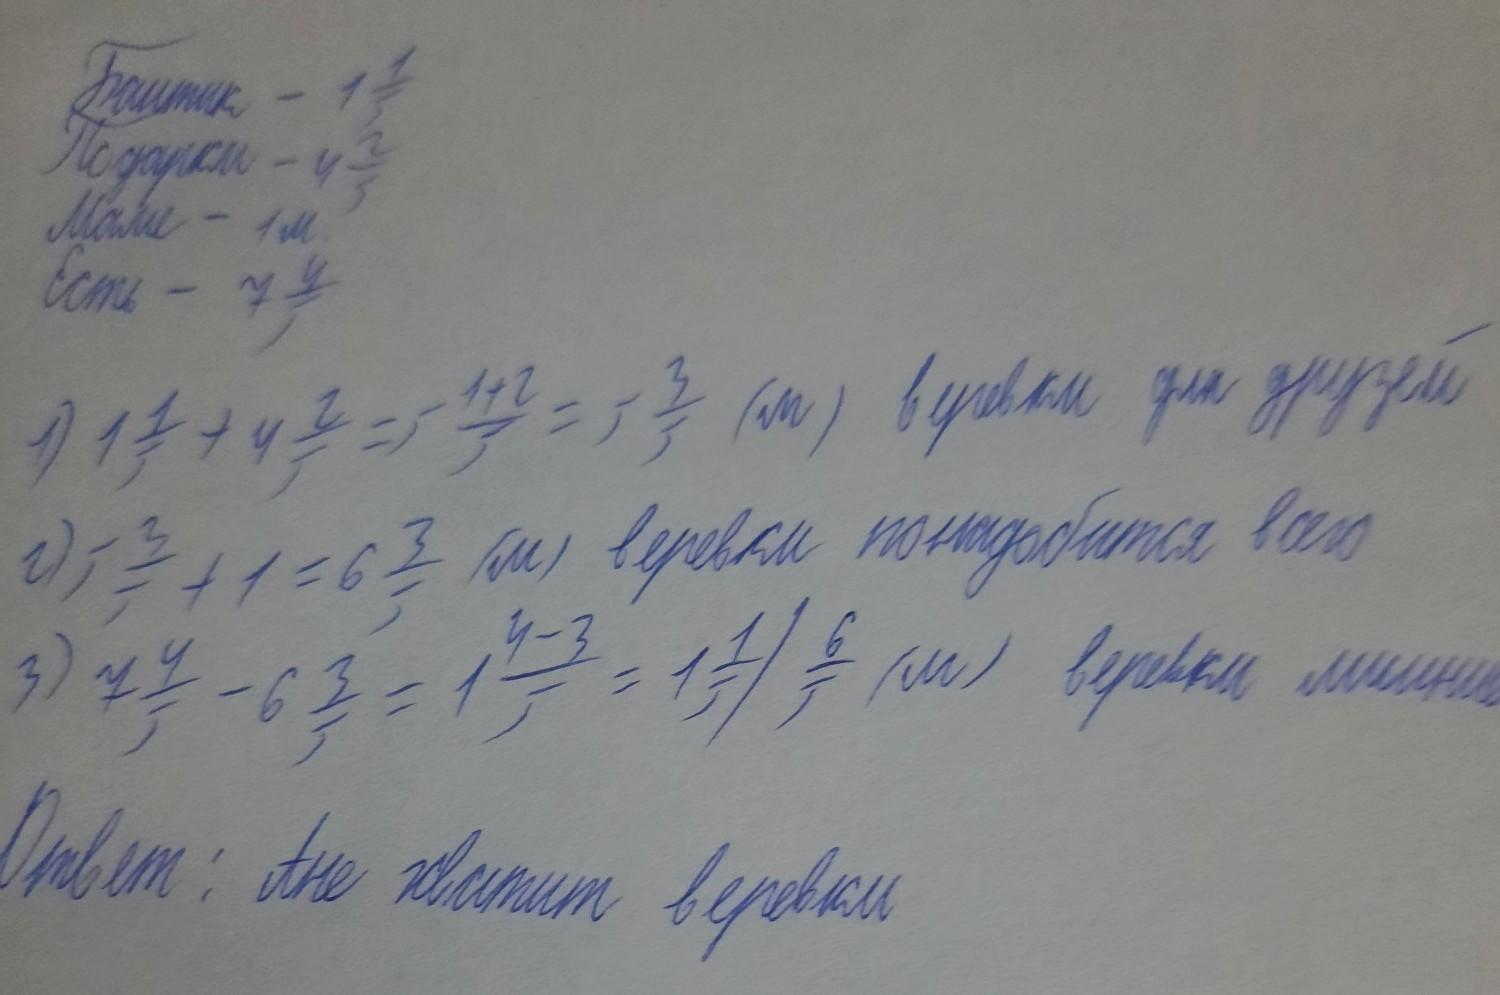 Бантик - 1 1/5
Подарки - 4 2/5
Маме - 1 м.
Есть - 7 4/5
1) 1 1/5 + 4 2/5 = 5 (1+2)/5 = 5 3/5 (м) веревки для друзей
2) 5 3/5 + 1 = 6 3/5 (м) веревки понадобится всего
3) 7 4/5 - 6 3/5 = 1 (4-3)/5 = 1 1/5 / 6/5 (м) веревки
Ответ: Ане хватит веревки